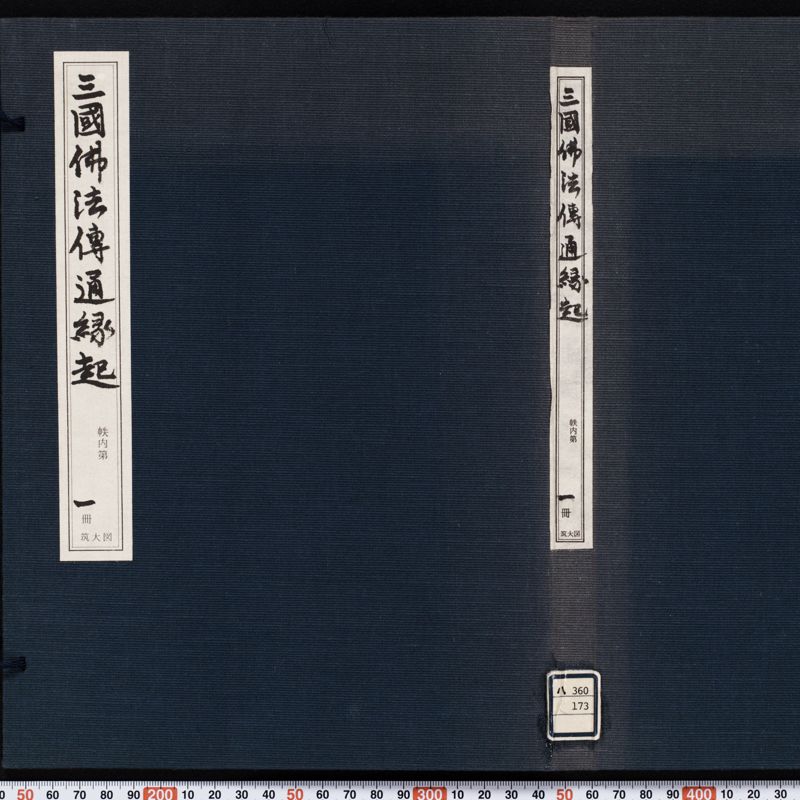 三國佛法傳通緣起
帙内第
一
冊
筑大図
三國佛法傳通緣起
帙内第
一
冊
筑大図
ハ 360
173
0 50 60 70 80 90 200 10 20 30 40 50 60 70 80 90 300 10 20 30 40 50 60 70 80 90 400 10 20 30